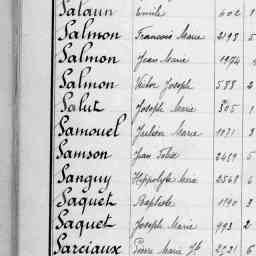 Salaun Emile 602 1
Salmon Francois Marie 2193 5
Salmon Jean Marie 1974
Salmon Victor Joseph 538 2
Salut Joseph Marie 345 1
Samouel Julien Marie 1031 3
Samson Jean 2459 5
Sanguy Hippolyte Marie 2568 6
Saquet Baptiste 1190 3
Saquet Joseph Marie 993 2
Sarciaux Pierre Marie 2521 6